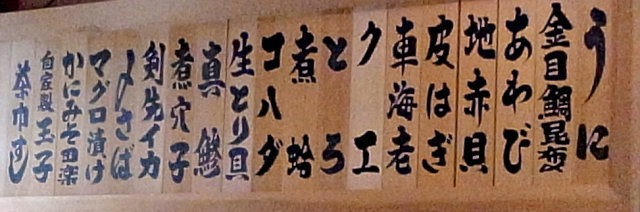 うに
金目鯛昆布〆
あわび
地赤貝
皮はぎ
車海老
クエ
とろ
煮蛤
コハダ
生とり貝
真鯵
煮穴子
剣先イカ
〆さば
マグロ漬け
かにみそ甲楽
自家製玉子
茶巾すし